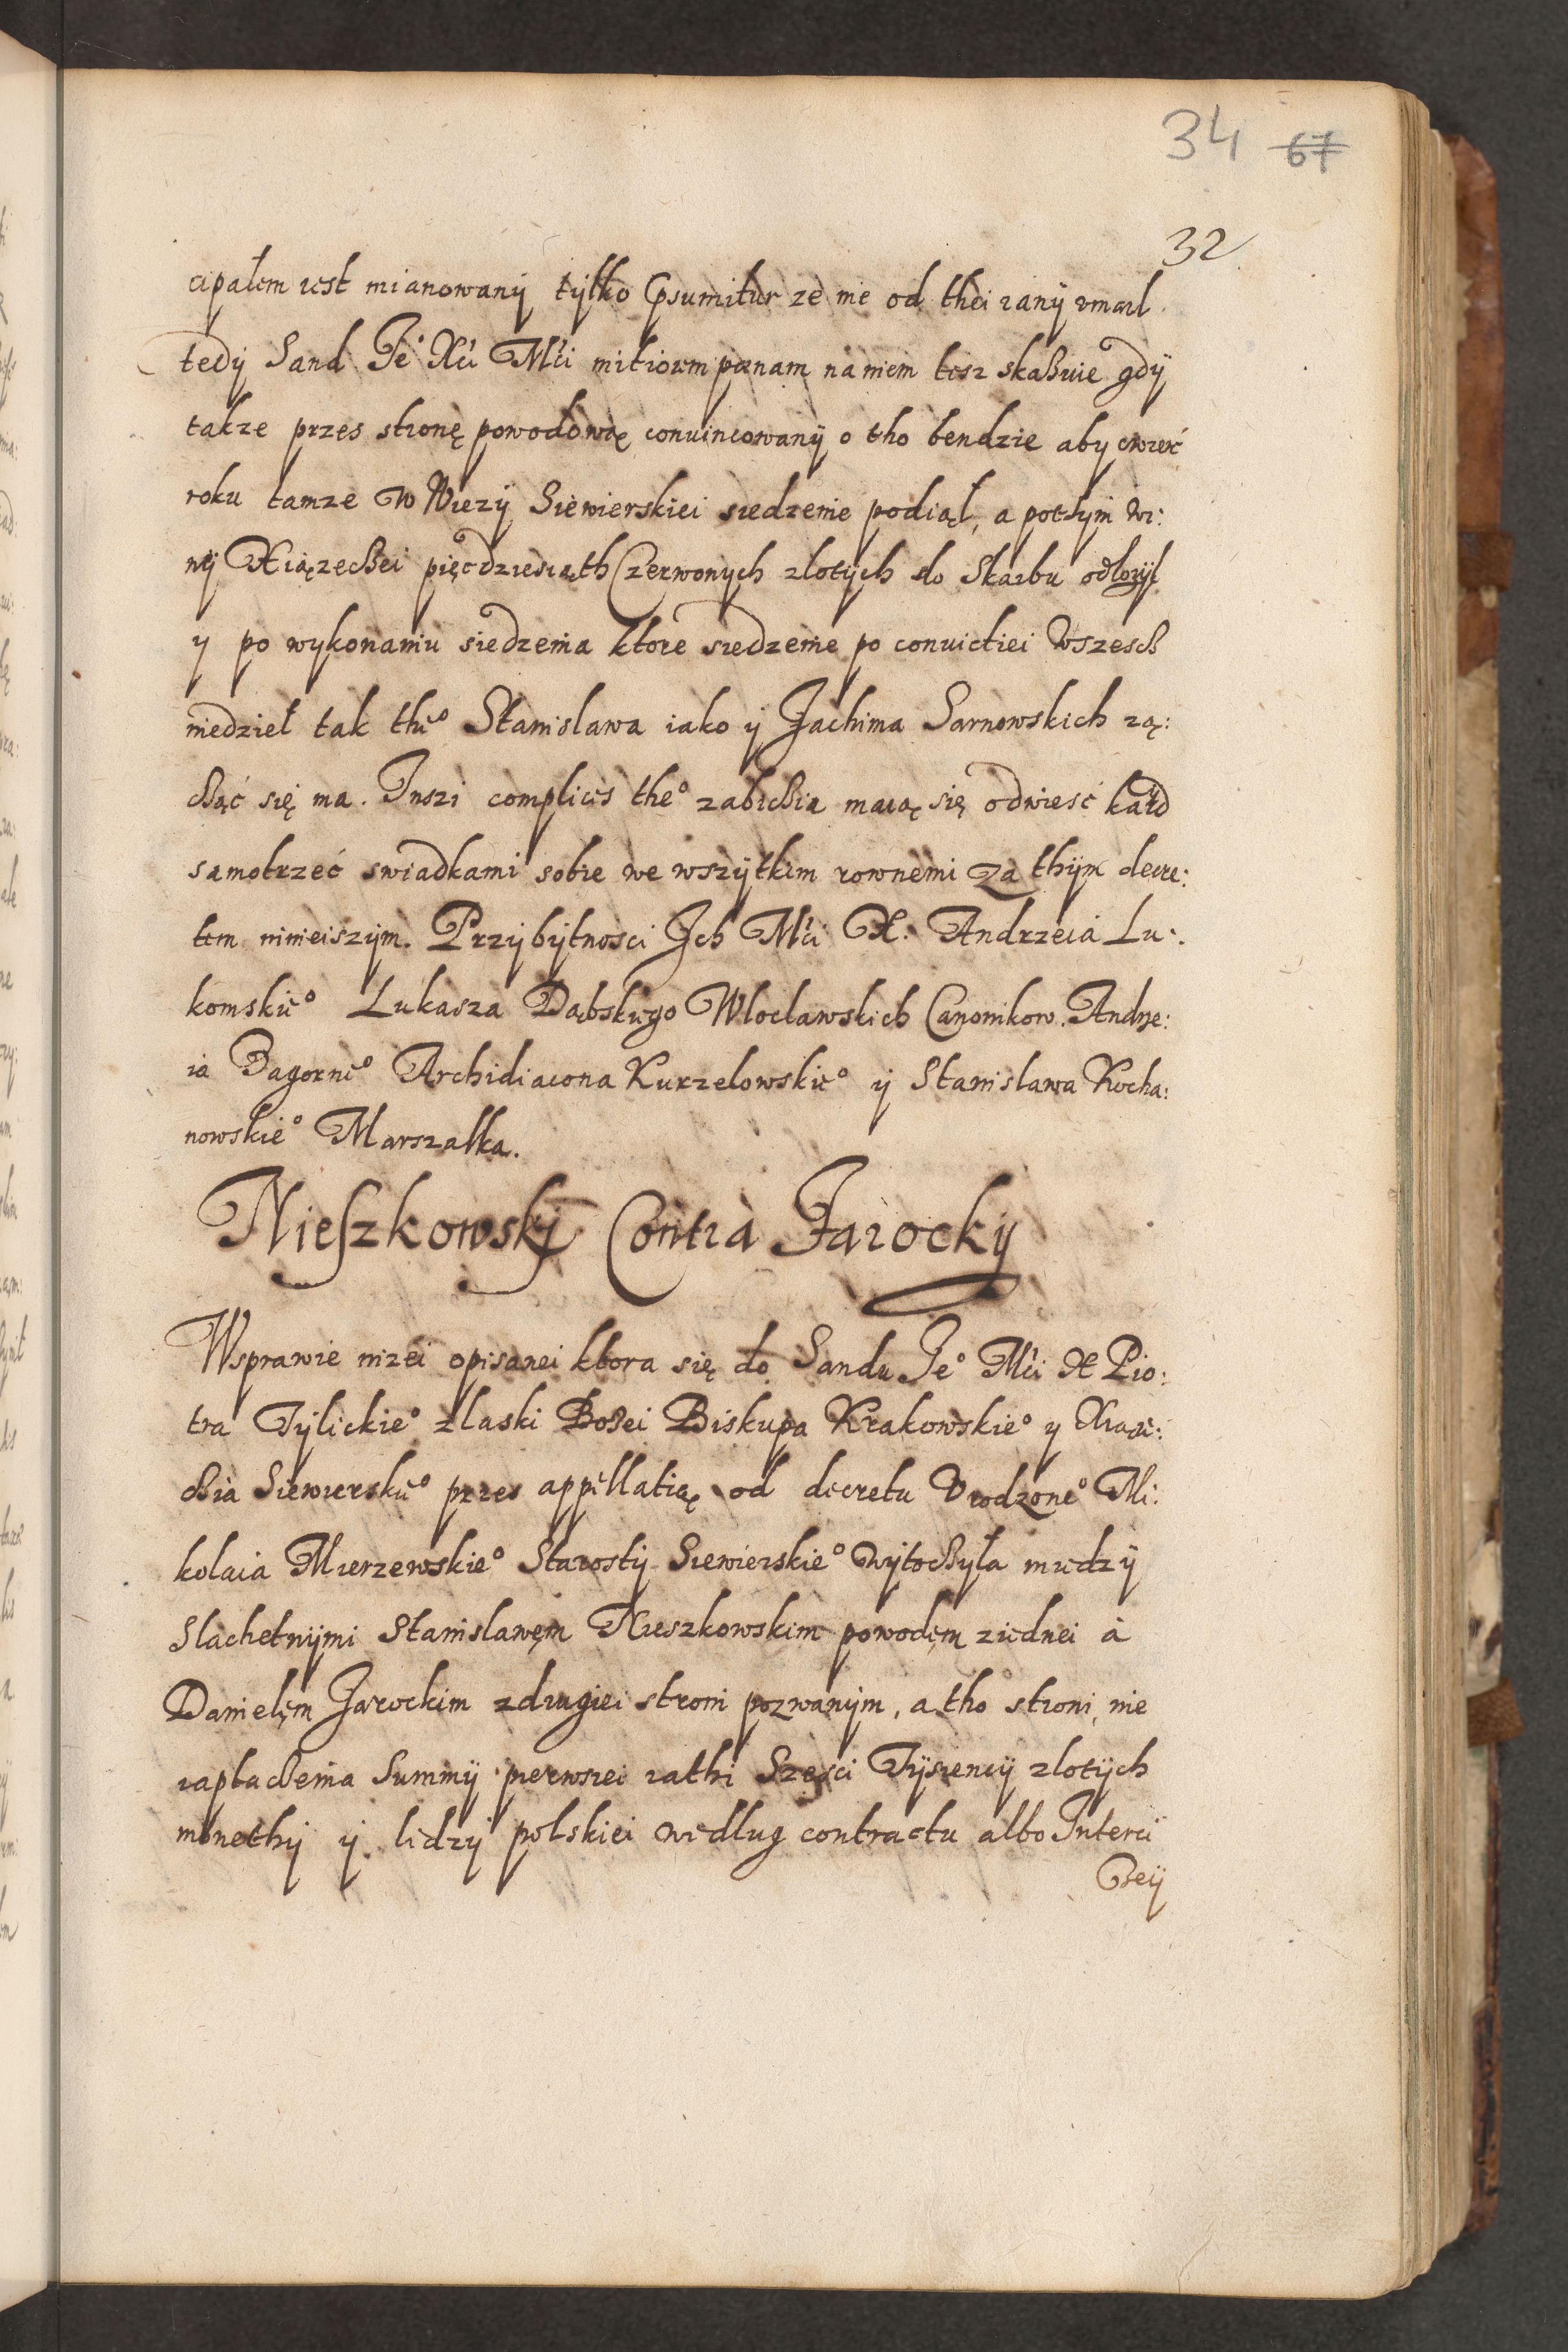 34 67
32
cipałem iest mianowanÿ tÿlko Psumitur ze nie od thei ranÿ vmarl
tedÿ Sand Je° Xci Mći mitiorem pœnam na niem tesz skaßuie gdÿ
takze przes stronę powodową conuincowanÿ o tho bendzie aby cwierć
roku tamze w Wiezÿ Siewierskiei siedzenie podiął, a potÿm wi:
nÿ Xiązeckei pięcdziesiąth Czerwonych zlotÿch do Skarbu odłozÿl
y po wykonaniu siedzenia ktore siedzenie po conuictiei Wszesch
niedziel tak the° Stanislawa iako ÿ Jachima Sarnowskich zą:
cząć się ma. Inszi complices the° zabichia maią się odwiesć kazd
samotrzeć swiadkami sobie we wszÿtkim rownemi za thÿm decre:
tem ninieiszÿm. Przÿbÿtnosci Jch Mći X. Andrzeia Lu:
komskie° Lukasza Dąbskiego Wloclawskich Canonikow. Andrze:
ia Bagorne° Archidiacona Kurzelowskie° ÿ Stanislawa Kocha:
nowskie° Marszalka.
Nieszkowskÿ Contra Jarockÿ
Wsprawie nizei opisanei ktora się do Sandu Je° Mći X Pio:
tra Tÿlickie° zlaski Bozei Biskupa Krakowskie° y Xiązę:
cia Siewierskie° przes appellatię od decretu Vrodzone° Mi:
kolaia Mierzewskie° Starostÿ Siewierskie° wÿtoczÿła miedzÿ
Slachetnÿmi Stanislawem Nieszkowskim powodem ziednei à
Danielem Jarockim zdrugiei stroni pozwanÿm, a tho stroni nie
zaplaczenia Summÿ pierwszei rathi Szesci Tÿsiencÿ zlotÿch
monethÿ ÿ liczbÿ polskiei wedlug contractu albo Interci
zeÿ